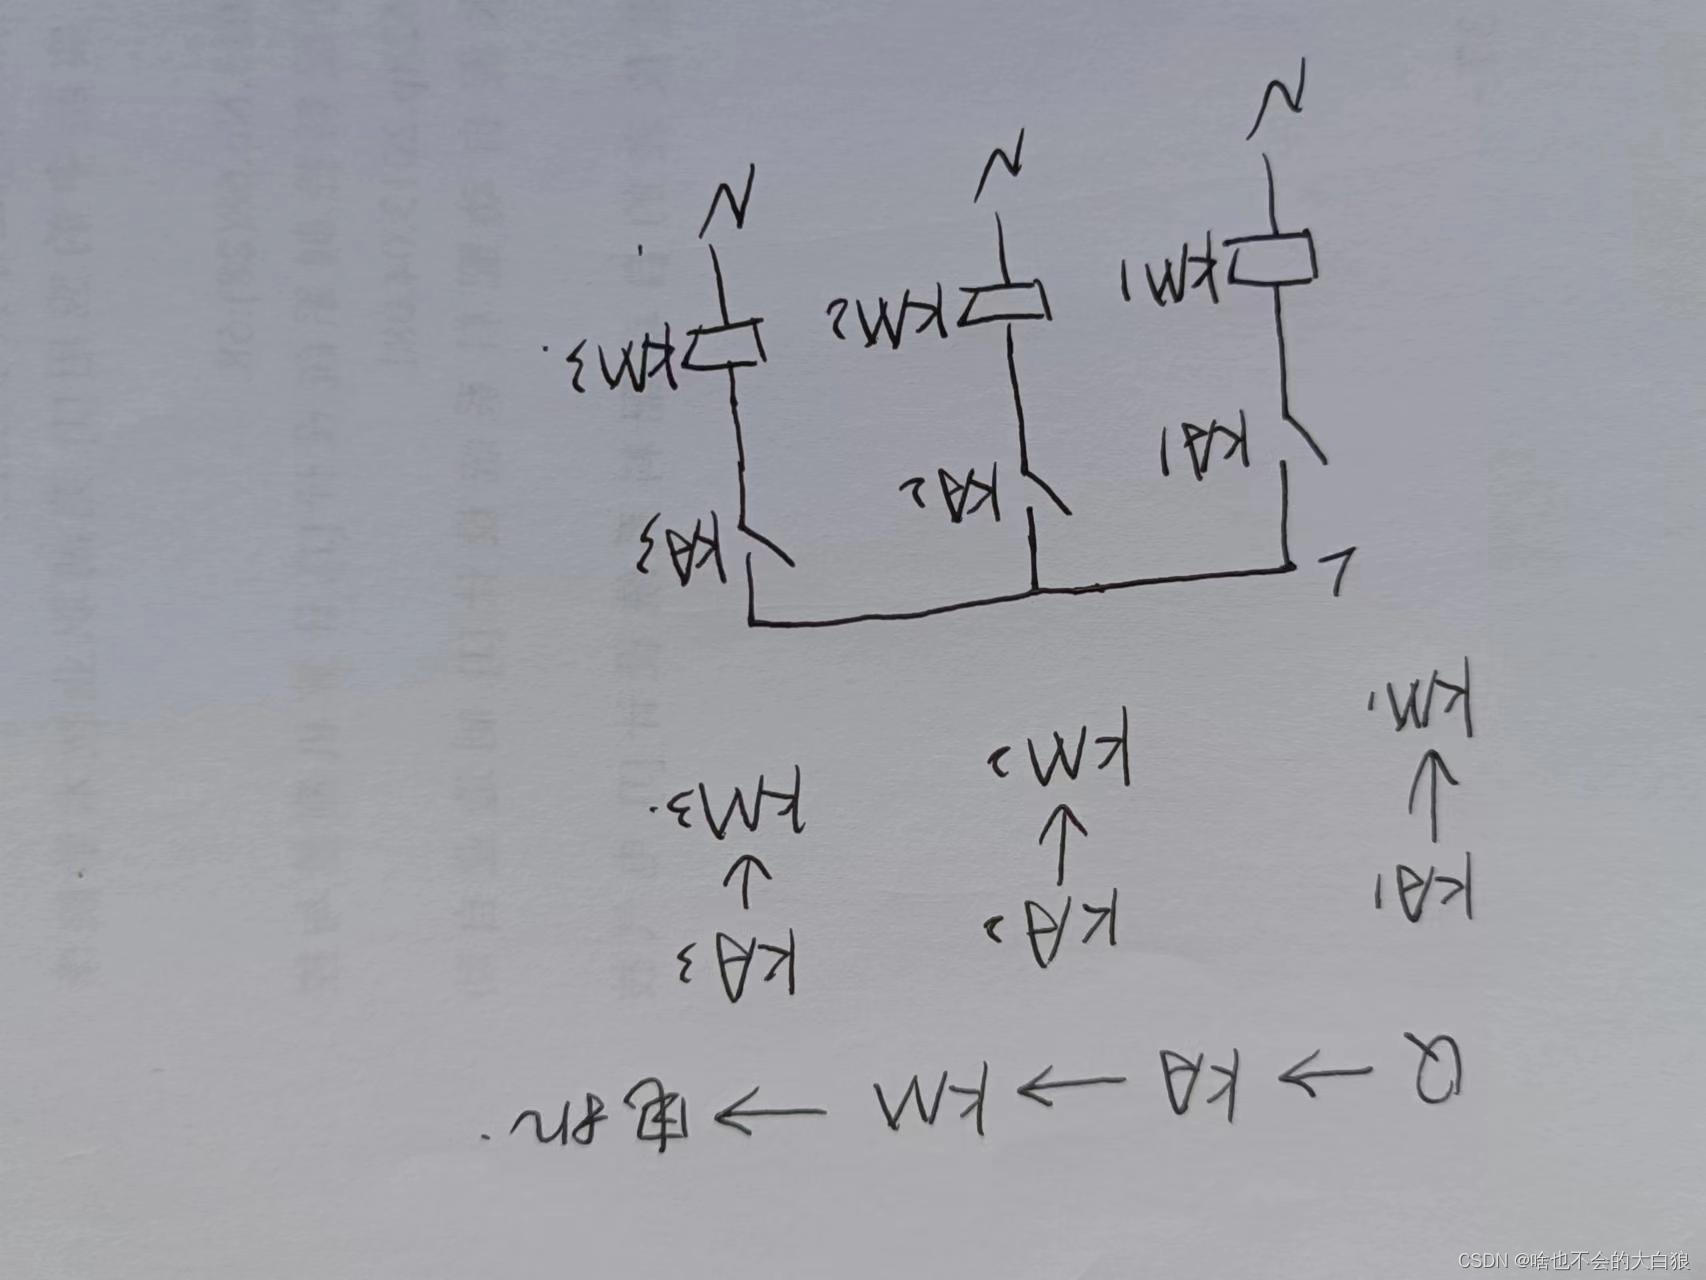 Q → KA → KM → 电机.
KA1 KA2 KA3
↓ ↓ ↓
KM1 KM2 KM3.
L
KA1 KA2 KA3
KM1 KM2 KM3.
N N N
CSDN @啥也不会的大白狼